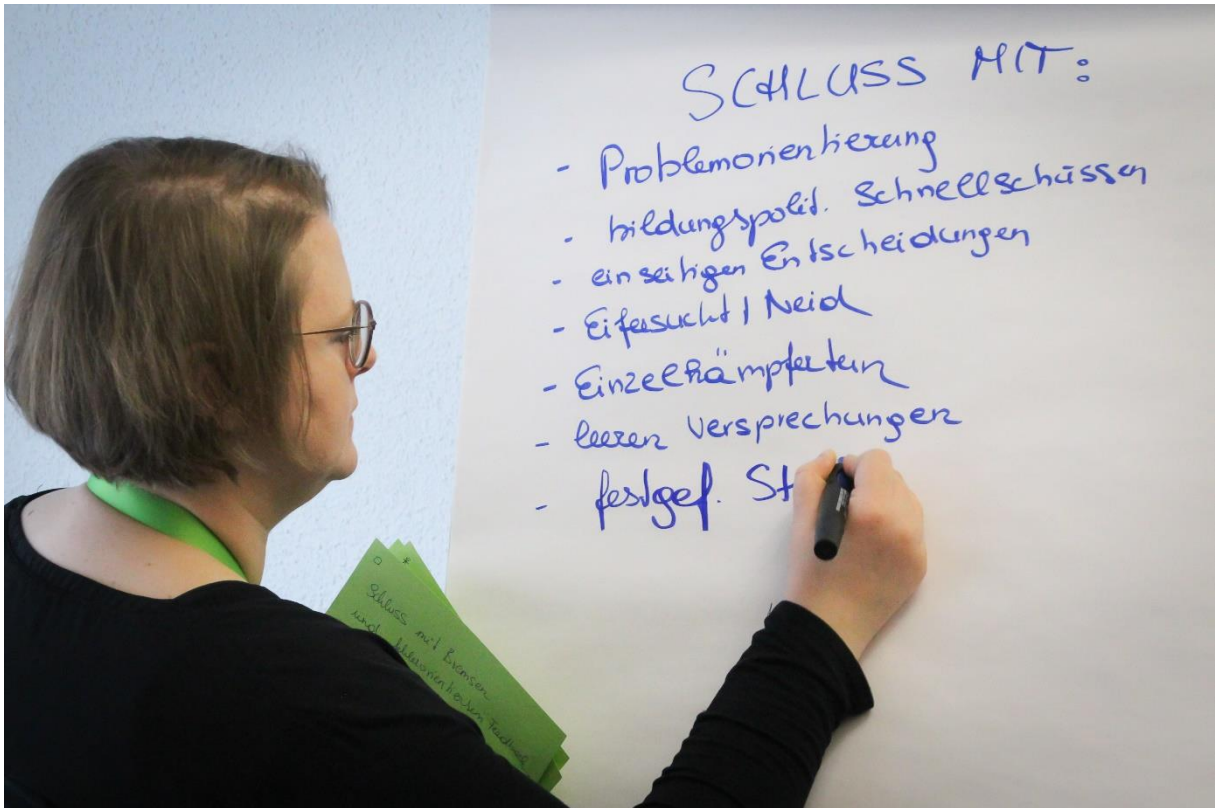 SCHLUSS MIT:
- Problemorientierung
- bildungspolit. Schnellschüssen
- einseitigen Entscheidungen
- Eifersucht / Neid
- Einzelkämpfertum
- leeren Versprechungen
- festgef. St
Schluss mit Bremsen
und